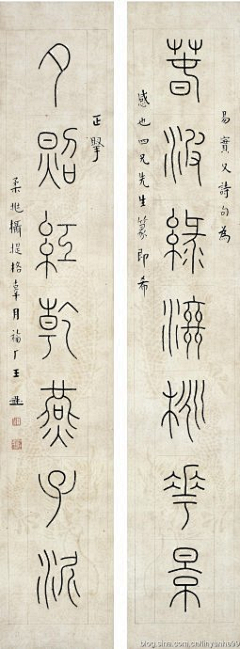 萅波綠桃華景
易實父詩句為
感也四兄先生篆即希
夕照紅乾燕子泥
正擥
柔兆攝提格辜月福厂王禔
blog.sina.com.cn/linyanhe99